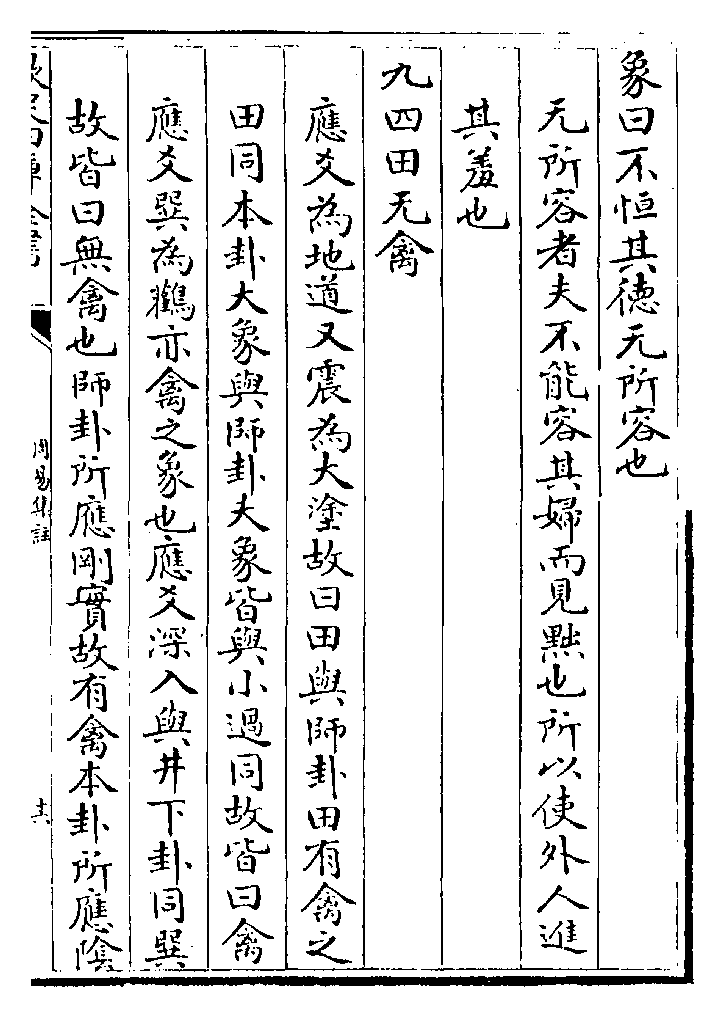 象曰不恒其德无所容也
无所容者夫不能容其婦而見黜也所以使外人進
其羞也
九四田无禽
應爻為地道又震為大塗故曰田與師卦田有禽之
田同本卦大象與師卦大象皆與小過同故皆曰禽
應爻巽為鸛亦禽之象也應爻深入與井下卦同巽
故皆曰無禽也師卦所應剛實故有禽本卦所應陰
周易集註